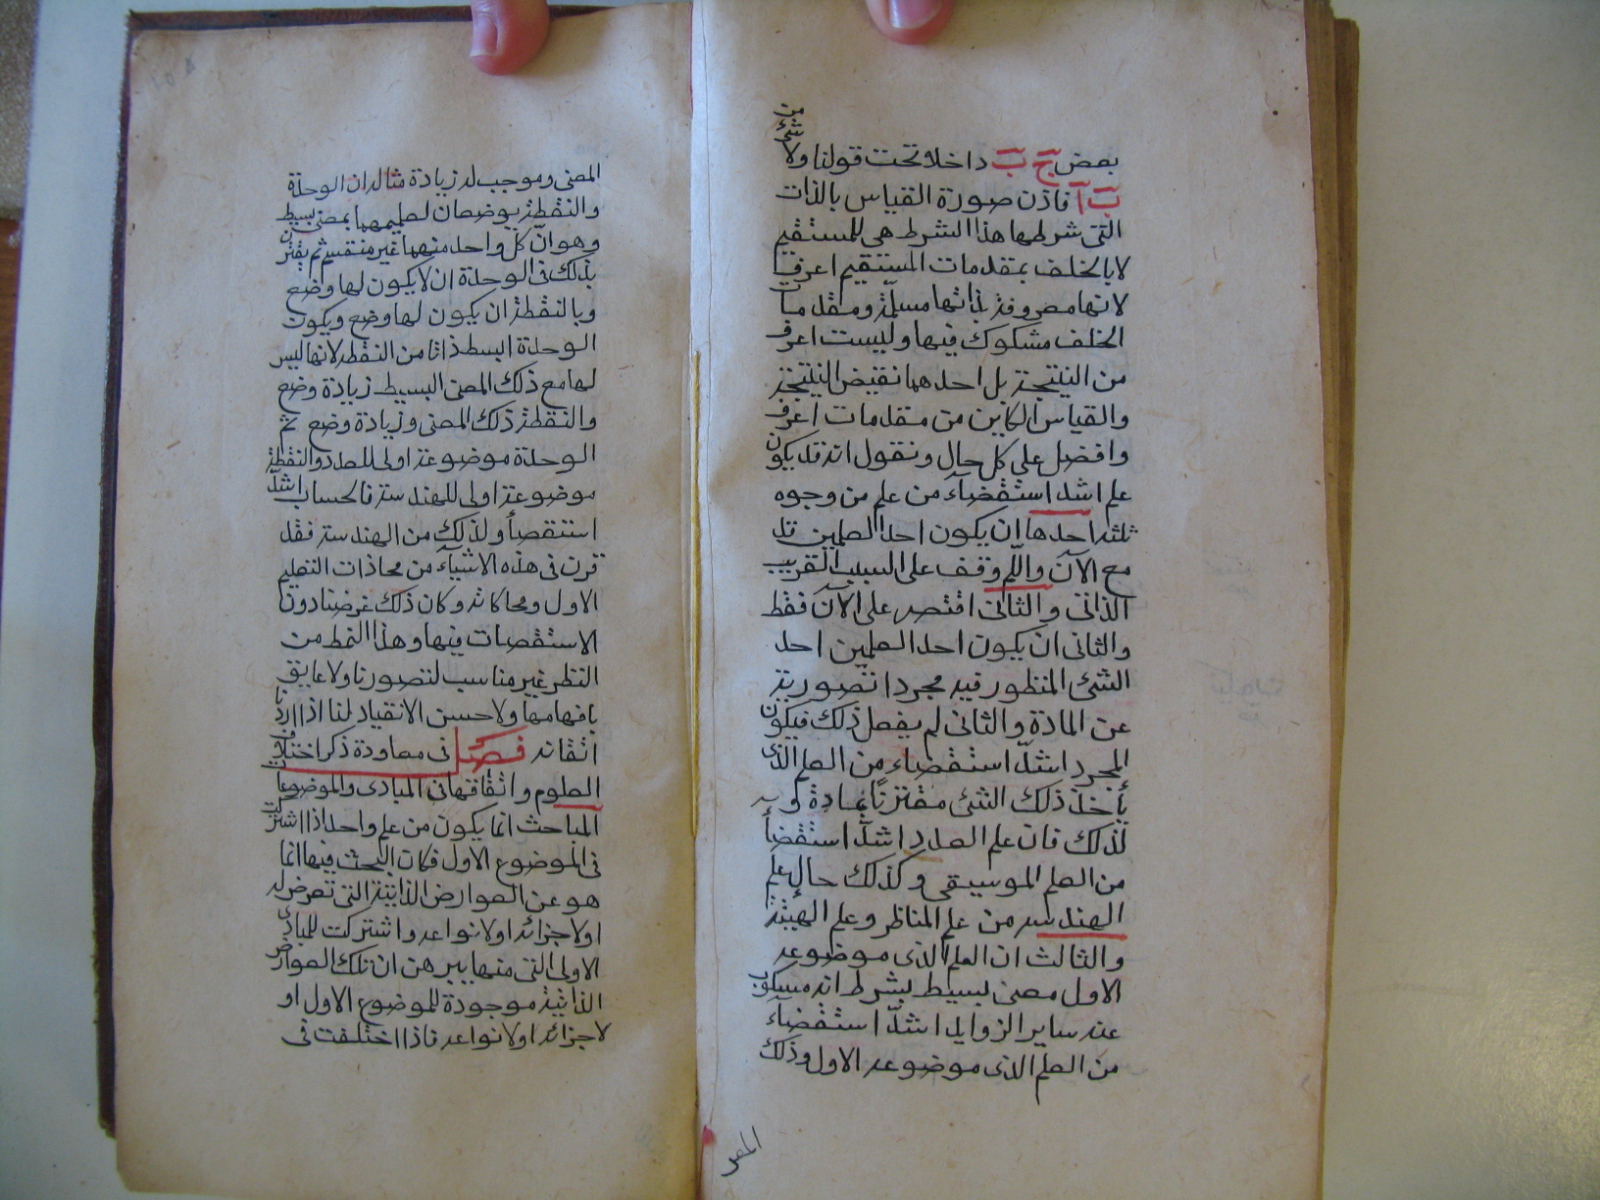 من
شئ
بعض ج ب داخلا تحت قولنا ولا
ب آ فاذن صورة القياس بالذات
التى شرطها هذا الشرط هى للمستقيم
لا بالخلف بمقدمات المستقيم اعرف
لانها معروفة بذاتها مسلمة ومقدمات
الخلف مشكوك فيها وليست اعرف
من النتيجة بل احدهما نقيض النتيجة
والقياس الكاين من مقدمات اعرف
وافضل على كل حال ونقول انه قد يكون
علم اشد استقضآء من علم من وجوه
ثلثه احدها ان يكون احد العلمين قد
مع الآن واللّم وقف على السبب القريب
الذاتى والثانى اقتصر على الآن فقط
والثانى ان يكون احد العلمين احد
الشئ المنظور فيه مجردا تصوريته
عن المادة والثانى لم يفعل ذلك فيكون
المجرد اشدّ استقضاء من العلم الذى
يأخذ ذلك الشئ مقترنًا بمادة و
لذلك فان علم العدد اشدّ استقضأ
من العلم الموسيقى وكذلك حال علم
الهندسه من علم المناظر وعلم الهيئة
والثالث ان العلم الذى موضوعه
الاول معنى بسيط بشرط انه
عنه ساير الزوايد اشدّ استقضآء
من العلم الذى موضوعه الاول وذلك
المعنى
المعنى وموجب له زيادة مثاله ان الوحدة
والنقطة يوضعان لعلميهما بمعنى بسيط
وهو انّ كل واحد منهما غير منقسم ثم يقترن
بذلك فى الوحدة ان لا يكون لها وضع
وبالنقطة ان يكون لها وضع ويكون
الوحدة ابسط ذاتا من النقطه لانها ليس
لها مع ذلك المعنى البسيط زيادة وضع
والنقطة ذلك المعنى وزيادة وضع ثم
الوحدة موضوعة اولى للعدد والنقطة
موضوعة اولى للهندسة فالحساب اشدّ
استقصأ ولذلك من الهندسة فقد
قرن فى هذه الاشيآء من محاذات التعليم
الاول ومحاكاته وكان ذلك غرضنا دون
الاستقصات فيها وهذا النمط من
النظر غير مناسب لتصورنا ولا عايق
بافهامها ولا حسن الانقياد لمنا اذا اردنا
اتقانه فصل فى معاودة ذكر اختلاف
العلوم واتفاقها فى المبادى والموضوعات
المباحث انما يكون من علم واحد اذا اشتركت
فى الموضوع الاول فكان البحث فيها انما
هو عن العوارض الذاتية التى تعرض له
او لاجزائه او لانواعه واشتركت للمبادى
الاولى التى منها يبرهن ان تلك العوارض
الذاتية موجودة للموضوع الاول او
لاجزائه او لانواعه فاذا اختلفت فى